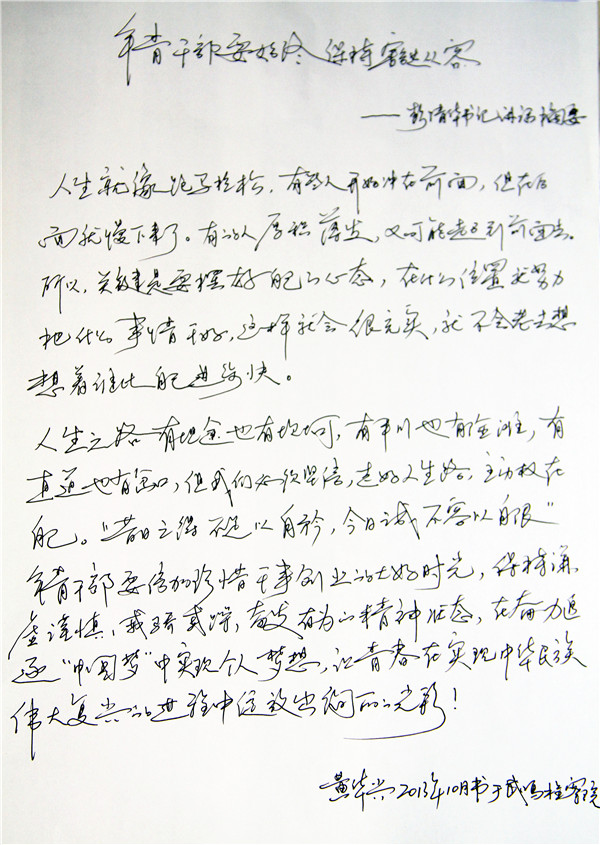 年青干部要始终保持豁达从容
——彭清华书记讲话摘要
人生就像跑马拉松，有的人开始冲在前面，但在后
面就慢下来了。有的人厚积薄发，又可能赶到前面去。
所以，关键是要摆好自己的心态，在什么位置就努力
把什么事情干好，这样就会很充实，就不会老去想
想着谁比自己进步快。
人生之路有坦途也有坎坷，有平川也有险滩，有
直道也有弯口，但我们必须坚信，走好人生路，主动权在
自己。“昔日之得不足以自矜，今日之成不容以自限”
年青干部要倍加珍惜干事创业的大好时光，保持谦
虚谨慎、戒骄戒躁，奋发有为的精神状态，在奋力追
逐“中国梦”中实现个人梦想，让青春在实现中华民族
伟大复兴的进程中绽放出绚丽的光彩！
黄华兴2013年10月书于武鸣检察院